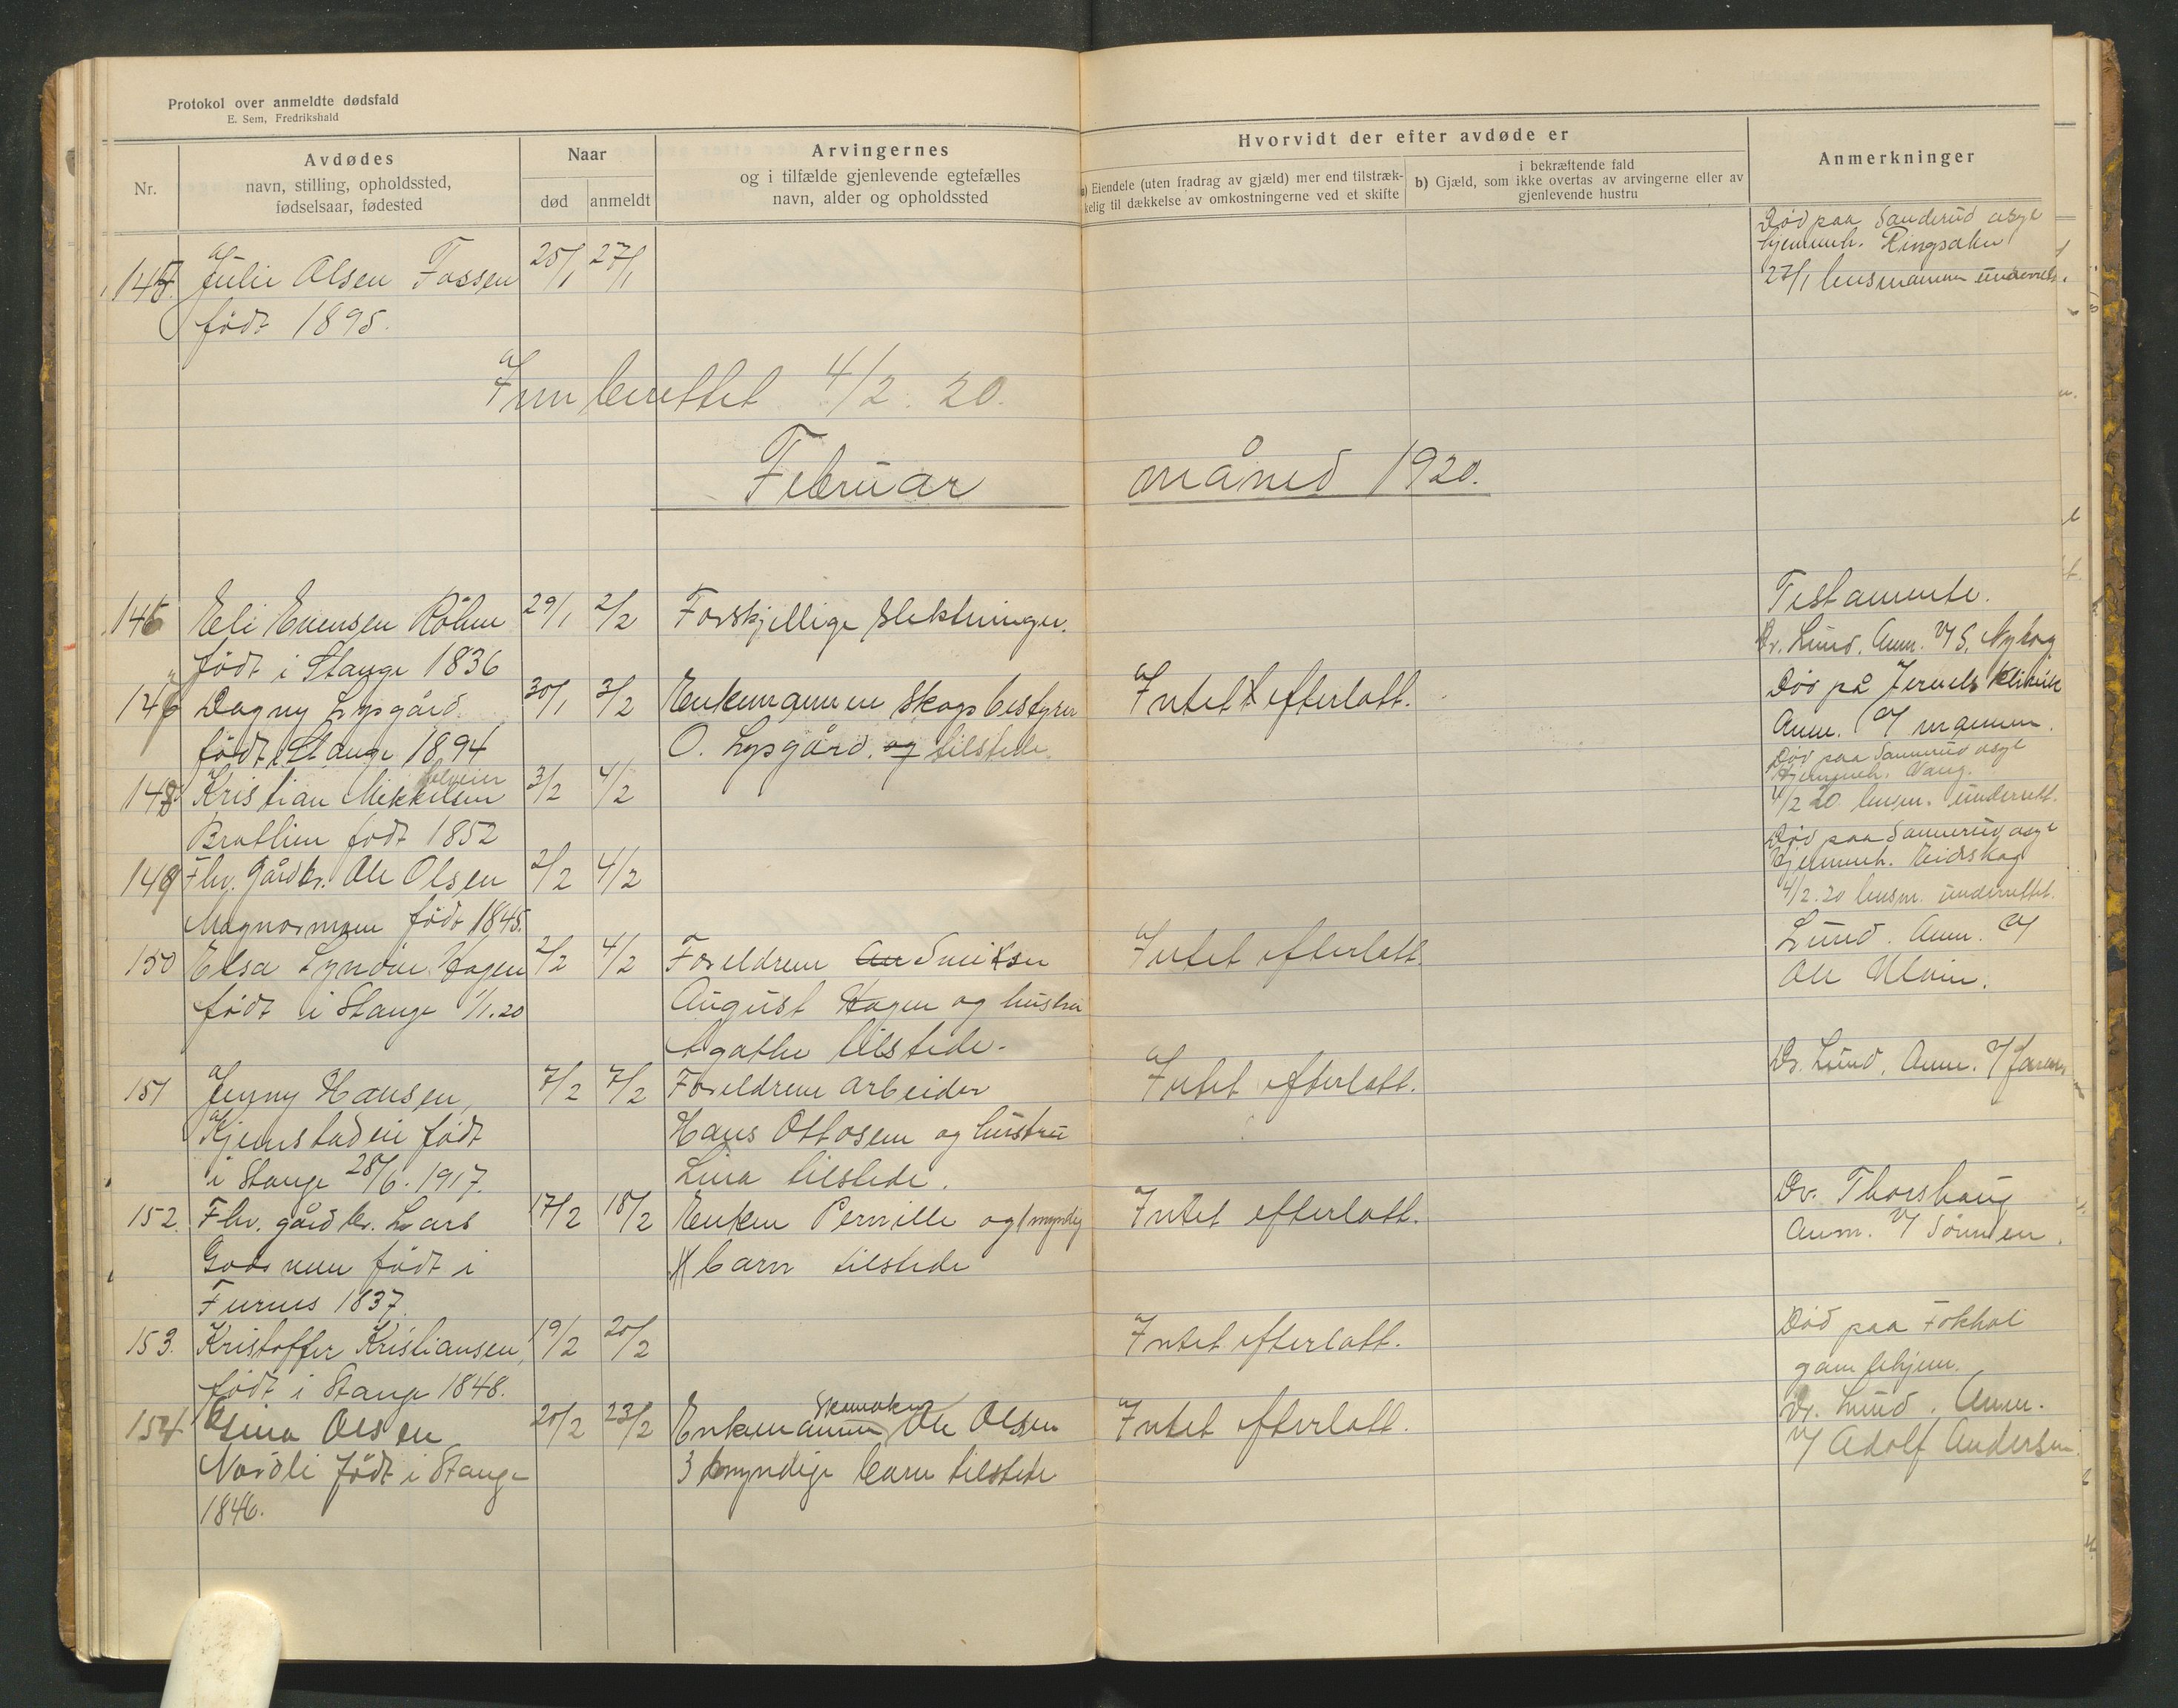 Protokol over anmeldte dødsfald
E. Sem, Fredrikshald
Nr.
Avdødes
navn, stilling, opholdssted,
fødselsaar, fødested
Naar
død
anmeldt
Arvingernes
og i tilfælde gjenlevende egtefælles
navn, alder og opholdssted
Hvorvidt der efter avdøde er
a) Eiendele (uten fradrag av gjæld) mer end tilstræk-
kelig til dækkelse av omkostningerne ved et skifte
i bekræftende fald
b) Gjæld, som ikke overtas av arvingerne eller av
gjenlevende hustru
Anmerkninger
Død paa Sanderud asyl
hjemmeh. Ringsaker
27/1 lensmannen underrett.
145. Julie Olsen Fossen 25/1 27/1
født 1895.
Innberettet 4/2. 20.
Februar måned 1920.
Testamente.
146 Eli Evensen Röhne 29/1 2/2 Forskjellige slektninger.
Dr. Lund. Anm. v/ S. Nyhag
født i Stange 1836
Død på Jervels klinikk
Anm. v/ mannen.
Dagny Lysgård 30/1 3/2 Enkemannen skogbestyrer Intet efterlatt.
født i Stange 1894 O. Lysgård og tilstede.
Død paa Sannerud asyl
Hjemmeh. Vang.
4/2 20 lensm. underrett.
148. Kristian Mikkelsen 3/2 4/2
Bratlien født 1852
Død paa Sannerud asyl
Hjemmeh. Eidskog
4/2.20 lensm. underrettet.
149 Fhv. gårdbr. Ole Olsen 2/2 4/2
Magnormoen født 1845.
150 Elsa Synøve Hagen 2/2 4/2 Foreldrene Snekker Intet efterlatt.
Lund. Anm. v/
Ole Uloin.
født i Stange 1/1.20 August Hagen og hustru
Agathe tilstede.
151 Jenny Hansen, 7/2 7/2 Foreldrene arbeider Intet efterlatt. Dr. Lund. Anm. v/ faren
Kjemstadeie født Hans Ottosen og hustru
i Stange 28/6. 1917. Lina tilstede.
Dr. Thorshaug
152. Fhv. gårdbr. Lars 17/2 18/2 Enken Pernille og 1 myndig Intet efterlatt. Anm. v/ sønnen.
født i barn tilstede
Furnes 1837.
153. Kristoffer Kristiansen, 19/2 20/2 Intet efterlatt. Død paa Fokhol
gamlehjem.
født i Stange 1848.
154 Gina Olsen 20/2 23/2 Enkemannen Skomaker Ole Olsen Intet efterlatt. Dr. Lund. Anm.
v/ Adolf Andersen.
Nordli født i Stange 3 myndige barn tilstede
1846.